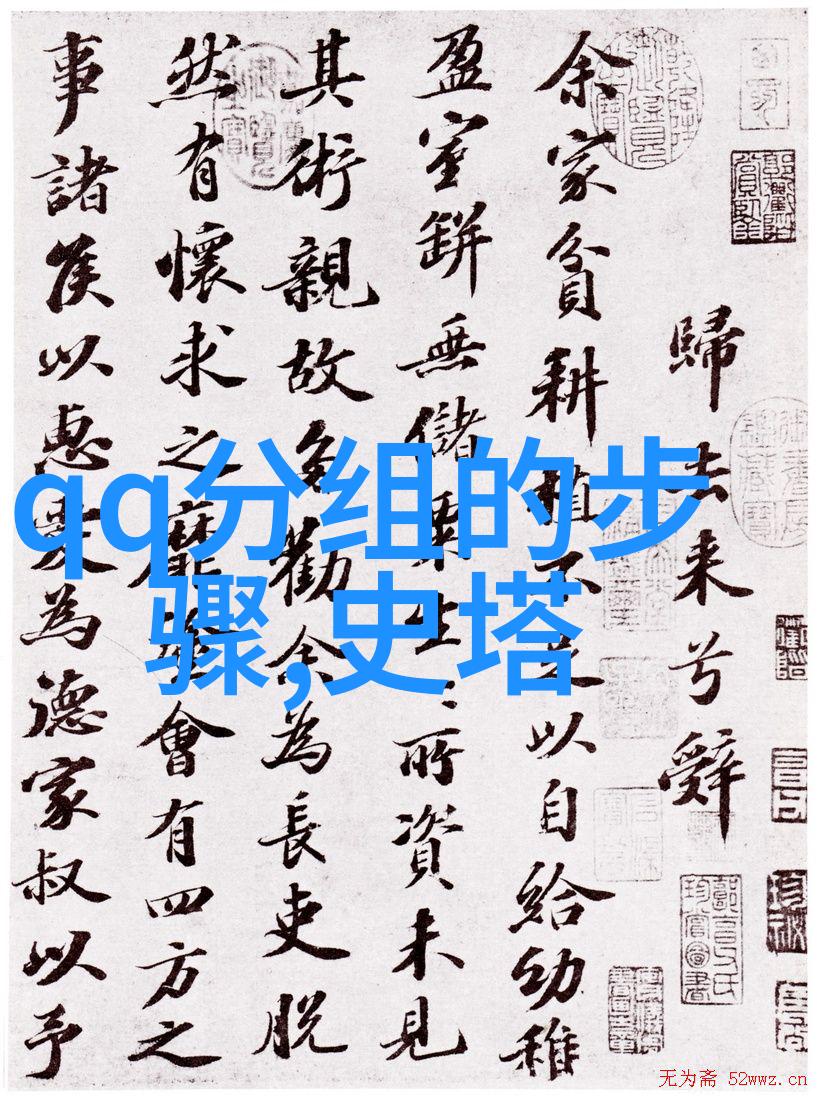 歸去来兮辭
余家貧耕植不足以自給幼稚
盈室缾無儲粟生〻所資未見
其術親故多勸余為長吏脱
然有懷求之靡途會有四方之
事諸侯以惠愛為德家叔以予
qq分组的步
骤,史塔
无为斋 52wwz.cn